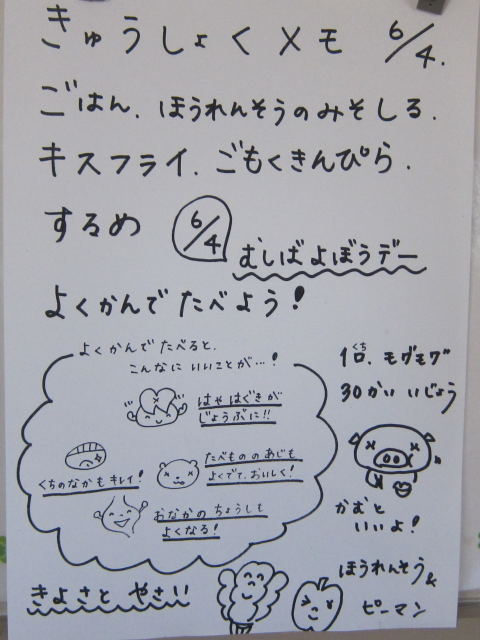 きゅうしょくメモ 6/4.
ごはん. ほうれんそうのみそしる.
キスフライ. ごもくきんぴら.
するめ 6/4 むしばよぼうデー
よくかんでたべよう!
よくかんでたべると、
こんなにいいことが…!
はやはぐきが
じょうぶに!!
たべもののあじも
よくでて、おいしく!
くちのなかもキレイ!
おなかのちょうしも
よくなる!
1口. モグモグ
くち
30かいいじょう
かむと
いいよ!
きよさとやさい
ほうれんそう&
ピーマン